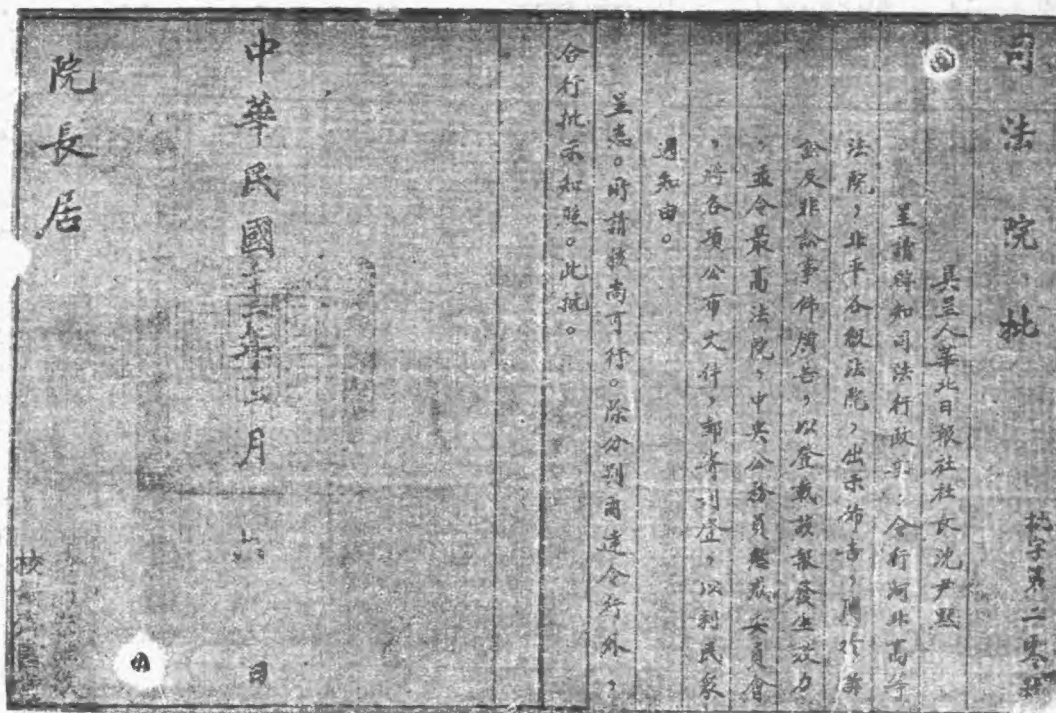 司法院批
批字第二零號
具呈人華北日報社社長沈尹默
呈請轉知司法行政部，令行河北高等
法院，北平各級法院，出示佈告，關於訴
訟及非訟事件廣告，以登載該報發生效力
並令最高法院，中央公務員懲戒委員會
，將各項公布文件，郵寄刊登，以利民眾
週知由。
呈悉。所請該尚可行。除分別函達令行外，
合行批示知照。此批。
中華民國二十二年十二月六日
院長居
校